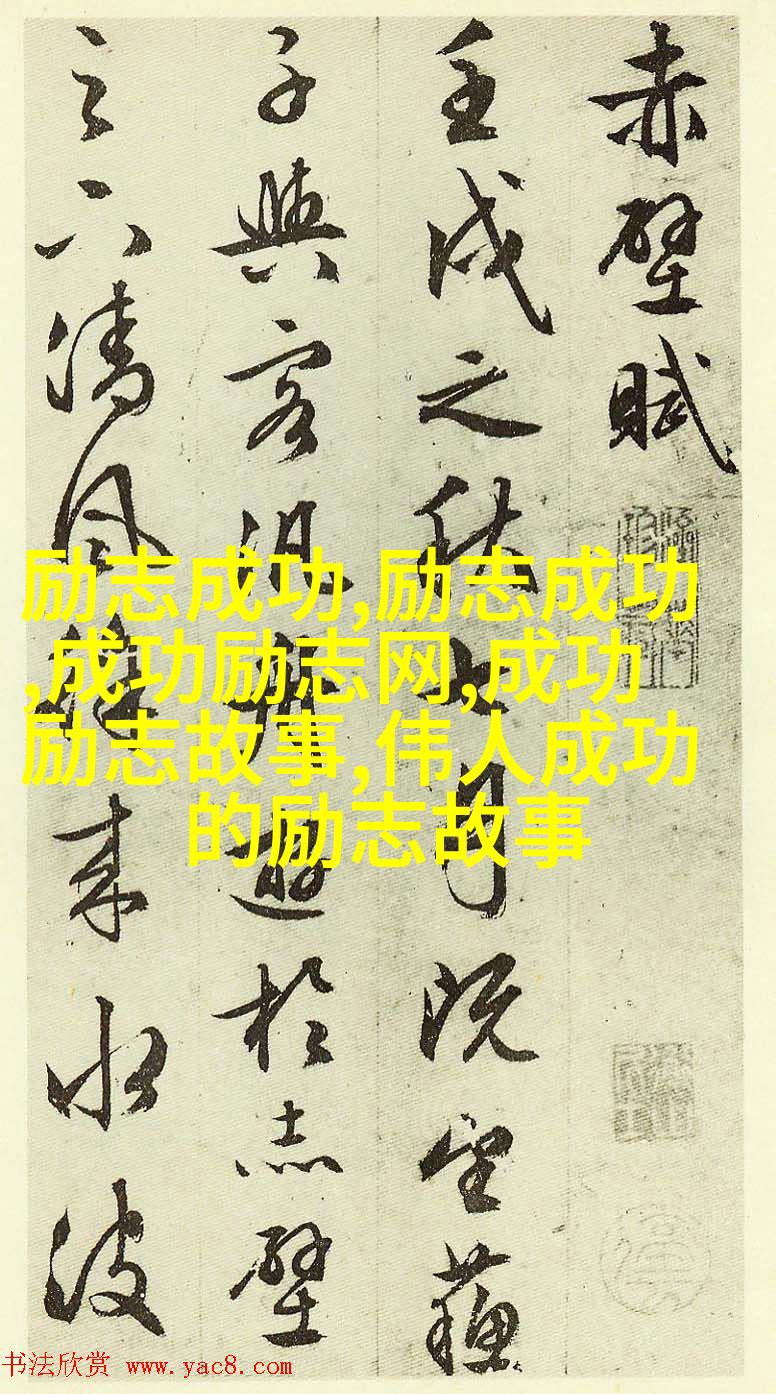 赤壁賦
壬戌之秋七月既望蘇
子與客泛舟遊於赤壁
之下清風徐來水波
励志成功,励志成功
,成功励志网,成功
励志故事,伟人成功
的励志故事
书法欣赏 www.yac8.com